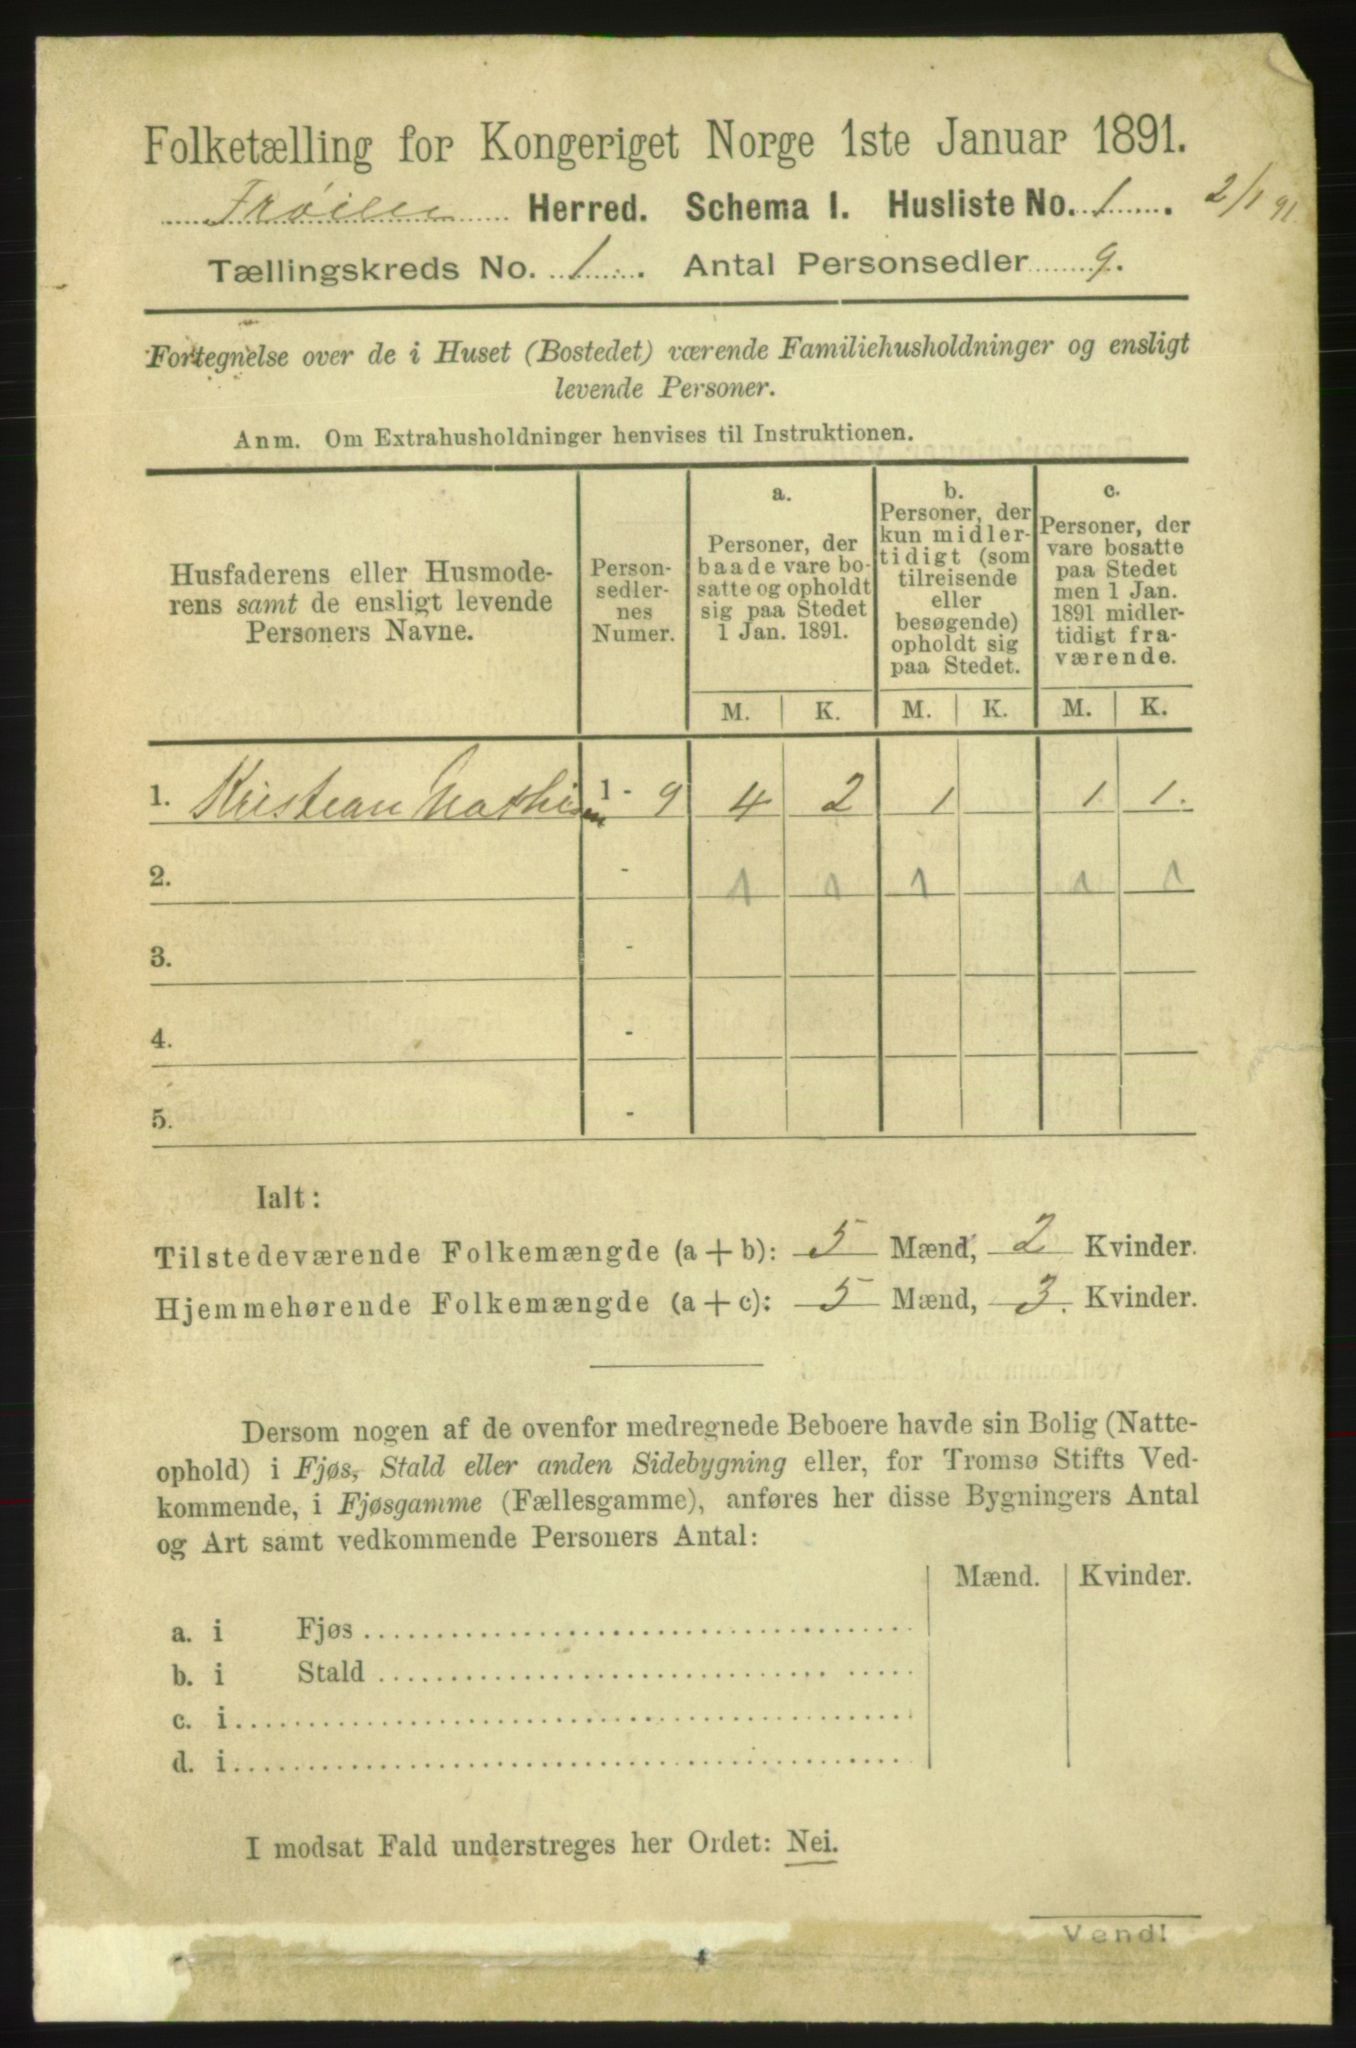 Folketælling for Kongeriget Norge 1ste Januar 1891.
Herred. Schema I. Husliste No. 1. 2/1 91.
Tællingskreds No. 1. Antal Personsedler 9.
Fortegnelse over de i Huset (Bostedet) værende Familiehusholdninger og ensligt
levende Personer.
Anm. Om Extrahusholdninger henvises til Instruktionen.
Husfaderens eller Husmode-
rens samt de ensligt levende
Personers Navne.
Person-
sedler-
nes
Numer.
a.
Personer, der
baade vare bo-
satte og opholdt
sig paa Stedet
1 Jan. 1891.
b.
Personer, der
kun midler-
tidigt (som
tilreisende
eller
besøgende)
opholdt sig
paa Stedet.
c.
Personer, der
vare bosatte
paa Stedet
men 1 Jan.
1891 midler-
tidigt fra-
værende.
M. K. M. K. M. K.
1. Kristean Mathisen 1 - 9 4 2 1 1 1.
2. - 1 1 1 1 1
3. -
4. -
5. -
Ialt:
Tilstedeværende Folkemængde (a + b): 5 Mænd, 2 Kvinder.
Hjemmehørende Folkemængde (a + c): 5 Mænd, 3. Kvinder.
Dersom nogen af de ovenfor medregnede Beboere havde sin Bolig (Natte-
ophold) i Fjøs, Stald eller anden Sidebygning eller, for Tromsø Stifts Ved-
kommende, i Fjøsgamme (Fællesgamme), anføres her disse Bygningers Antal
og Art samt vedkommende Personers Antal:
Mænd. Kvinder.
a. i Fjøs
b. i Stald
c. i
d. i
I modsat Fald understreges her Ordet: Nei.
Vend!